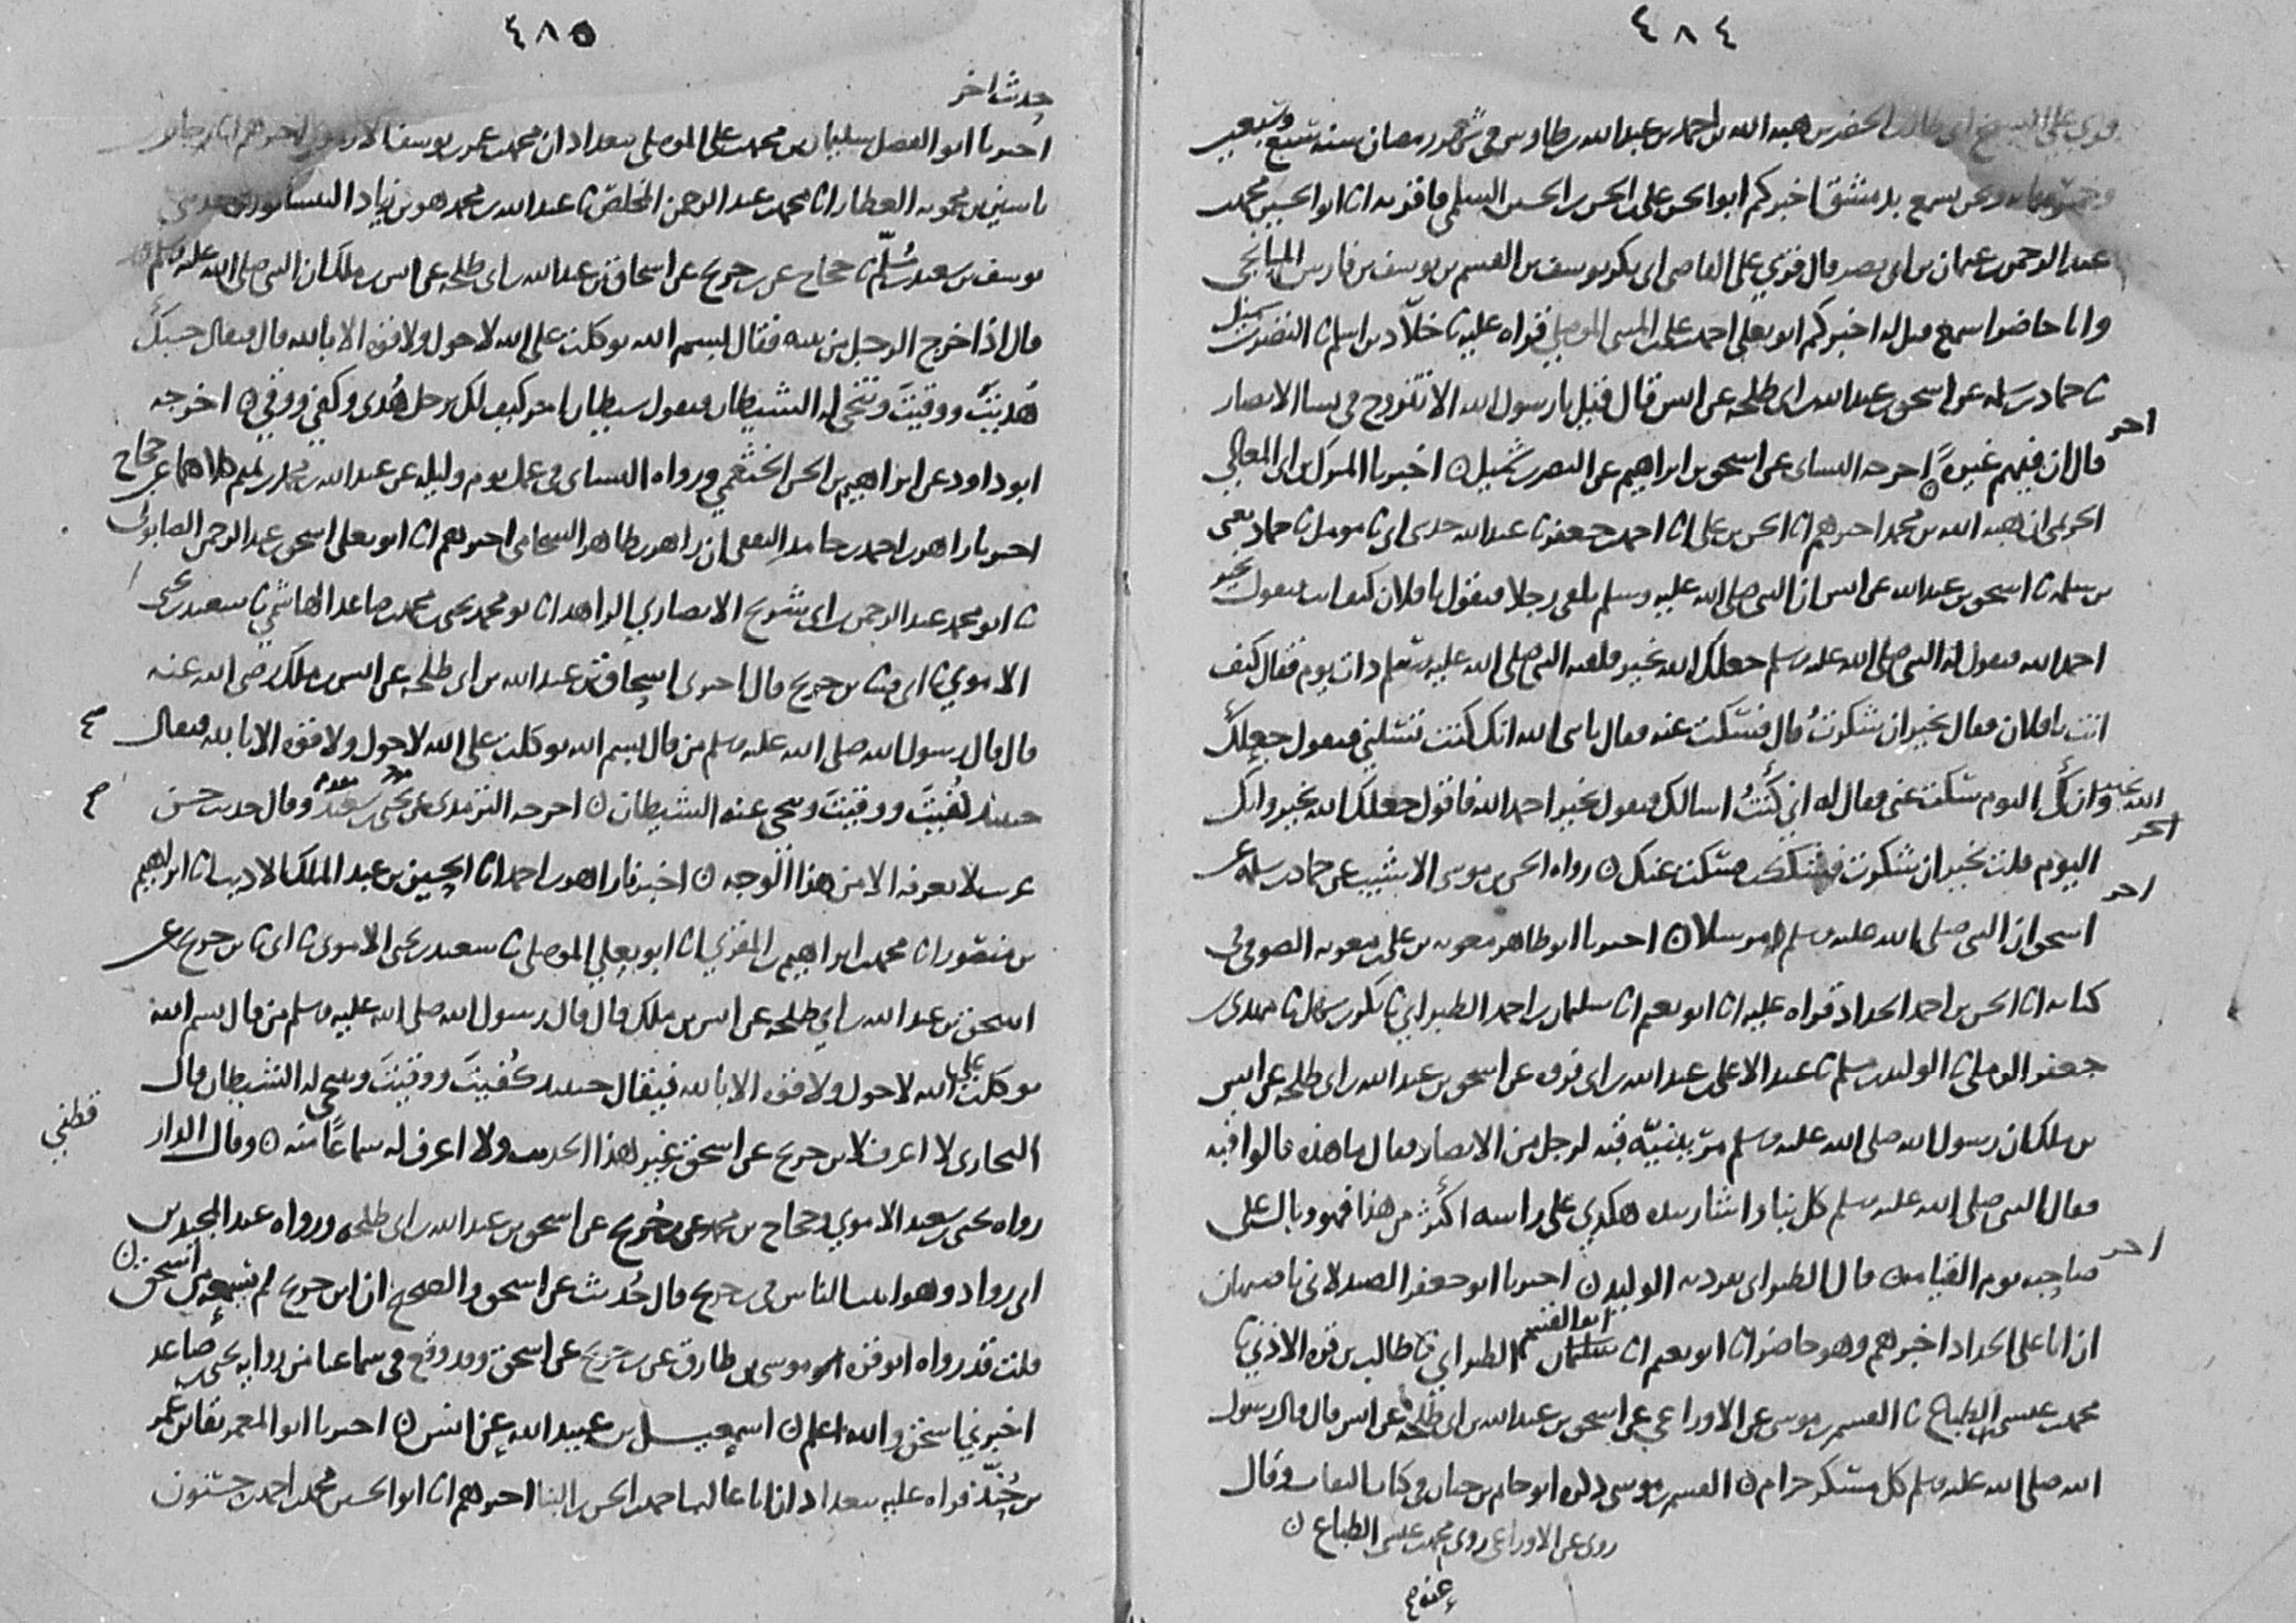 ٤٨٤
قرئ على الشيخ ابي طالب الخضر بن هبه الله بن احمد بن عبد الله بن طاوس في شهر رمضان سنه سبع وسبعين
وخمسمايه ونحن نسمع بدمشق اخبركم ابو الحسن علي بن الحسن بن الحسين السلمي فاقر به انا ابو الحسين محمد بن
عبد الرحمن بن عثمان بن ابي نصر قال قرئ على القاضي ابي بكر يوسف بن القسم بن يوسف بن فارس الميانجي
وانا حاضر اسمع قيل له اخبركم ابو يعلى احمد بن علي بن المثنى الموصلي قراه عليه نا خلاد بن اسلم نا النضر بن شميل
نا حماد بن سلمه عن اسحق بن عبد الله بن ابي طلحه عن انس قال قيل يا رسول الله الا تتزوج في نسا الانصار
قال ان فيهم غيره اخرجه النساي عن اسحق بن ابراهيم عن النضر بن شميل ن اخبرنا المبرك بن ابي المعالي
اخر
الحريمي ان هبه الله بن محمد اخبرهم انا الحسن بن علي انا احمد بن جعفر نا عبد الله حدثني ابي نا مومل نا حماد يعني
بن سلمه نا اسحق بن عبد الله عن انس ان النبي صلى الله عليه وسلم كان يلقى رجلا فيقول يا فلان كيف انت فيقول بخير
احمد الله فيقول له النبي صلى الله عليه وسلم جعلك الله بخير فلقيه النبي صلى الله عليه وسلم ذات يوم فقال كيف
انت يا فلان فقال بخير ان شكرت قال فسكت عنه فقال يا نبي الله انك كنت تسلني فتقول جعلك
الله بخير وانك اليوم سكت عني فقال له اني كنت اسالك فتقول بخير احمد الله فاقول جعلك الله بخير وانك
اخر
اليوم قلت بخير ان شكرت فشككت فسكت عنك ن رواه الحسن بن موسى الاشيب عن حماد بن سلمه عن
اخر
اسحق ان النبي صلى الله عليه وسلم مرسلا ن اخبرنا ابو طاهر معويه بن علي بن معويه الصوفي في
كتابه انا الحسن بن احمد الحداد قراه عليه انا ابو نعيم انا سليمان بن احمد الطبراني نا بكر بن سهل نا مهدي بن
جعفر الرملي نا الوليد بن مسلم نا عبد الاعلى بن عبد الله بن ابي فروه عن اسحق بن عبد الله بن ابي طلحه عن انس
بن ملك ان رسول الله صلى الله عليه وسلم مر ببنيه قبه لرجل من الانصار فقال ما هذه قالوا قبه
فقال النبي صلى الله عليه وسلم كل بنا واشار بيده هكذي على راسه اكثر من هذا فهو وبال على
صاحبه يوم القيامه ن قال الطبراني تفرد به الوليد ن اخبرنا ابو جعفر الصيدلاني باصبهان
اخر
ان ابا علي الحداد اخبرهم وهو حاضر انا ابو نعيم انا ابو القسم سليمان الطبراني نا طالب بن قره الاذني نا
محمد بن عيسى بن الطباع نا القسم بن موسى عن الاوزاعي عن اسحق بن عبد الله بن ابي طلحه عن انس قال قال رسول
الله صلى الله عليه وسلم كل مسكر حرام ن القسم بن موسى ذكره ابو حاتم بن حبان في كتاب الثقات وقال
روى عن الاوزاعي روى محمد بن عيسى الطباع ن
عنه
٤٨٥
حديث اخر
اخبرنا ابو الفضل سليمان بن محمد بن علي الموصلي ببغداد ان محمد بن عمر بن يوسف الارموي اخبرهم انا جابر بن
ياسين بن محمويه العطار انا محمد بن عبد الرحمن المخلص نا عبد الله بن محمد هو بن زياد النيسابوري حدثني
يوسف بن سعيد بن مسلم نا حجاج عن بن جريج عن اسحاق بن عبد الله بن ابي طلحه عن انس بن ملك ان النبي صلى الله عليه وسلم
قال اذا خرج الرجل من بيته فقال بسم الله توكلت على الله لا حول ولا قوه الا بالله قال فيقال حسبك
هديت ووقيت وتنحى له الشيطان فيقول شيطان اخر كيف لك برجل هدى وكفي ووقي ن اخرجه
ابو داود عن ابراهيم بن الحسن الخثعمي ورواه النساي في عمل يوم وليله عن عبد الله بن محمد بن تميم كلاهما عن حجاج
اخبرنا زاهر بن احمد بن حامد الثقفي ان زاهر بن طاهر الشحامي اخبرهم انا ابو يعلى اسحق بن عبد الرحمن الصابوني
نا ابو محمد عبد الرحمن بن ابي شريح الانصاري الزاهد انا ابو محمد يحيى بن محمد بن صاعد الهاشمي نا سعيد بن يحيى
الاموي نا ابي نا بن جريج قال اخبرني اسحاق بن عبد الله بن ابي طلحه عن انس بن ملك رضي الله عنه
قال قال رسول الله صلى الله عليه وسلم من قال بسم الله توكلت على الله لا حول ولا قوه الا بالله فيقال
حينئذ كفيت ووقيت وتنحى عنه الشيطان ن اخرجه الترمذي عن يحيى بن سعيد وقال حديث حسن
غريب لا نعرفه الا من هذا الوجه ن اخبرنا زاهر بن احمد انا الحسين بن عبد الملك الاديب انا ابراهيم
بن منصور انا محمد بن ابراهيم بن المقري انا ابو يعلي الموصلي نا سعيد بن يحيى الاموي نا ابي نا بن جريج عن
اسحق بن عبد الله بن ابي طلحه عن انس بن ملك قال قال رسول الله صلى الله عليه وسلم من قال بسم الله
توكلت على الله لا حول ولا قوه الا بالله فيقال حينئذ كفيت ووقيت وتنحى له الشيطان قال
البخاري لا اعرف لابن جريج عن اسحق غير هذا الحديث ولا اعرف له سماعا منه ن وقال الدار
قطني
رواه يحيى بن سعيد الاموي وحجاج بن محمد عن بن جريج عن اسحق بن عبد الله بن ابي طلحه ورواه عبد المجيد بن
ابي رواد وهو اثبت الناس في بن جريج قال حدثت عن اسحق والصحيح ان ابن جريج لم يسمعه من اسحق ن
قلت قد رواه ابو قره موسى بن طارق عن بن جريج عن اسحق وقد وقع في سماعنا من روايه يحيى بن صاعد
اخبرني اسحق والله اعلم ن اسمعيل بن عبيد الله عن انس ن اخبرنا ابو المعمر بقا بن عمر
بن حند قراه عليه ببغداد ان ابا غالب احمد بن الحسن بن البنا اخبرهم انا ابو الحسين محمد بن احمد بن حسنون